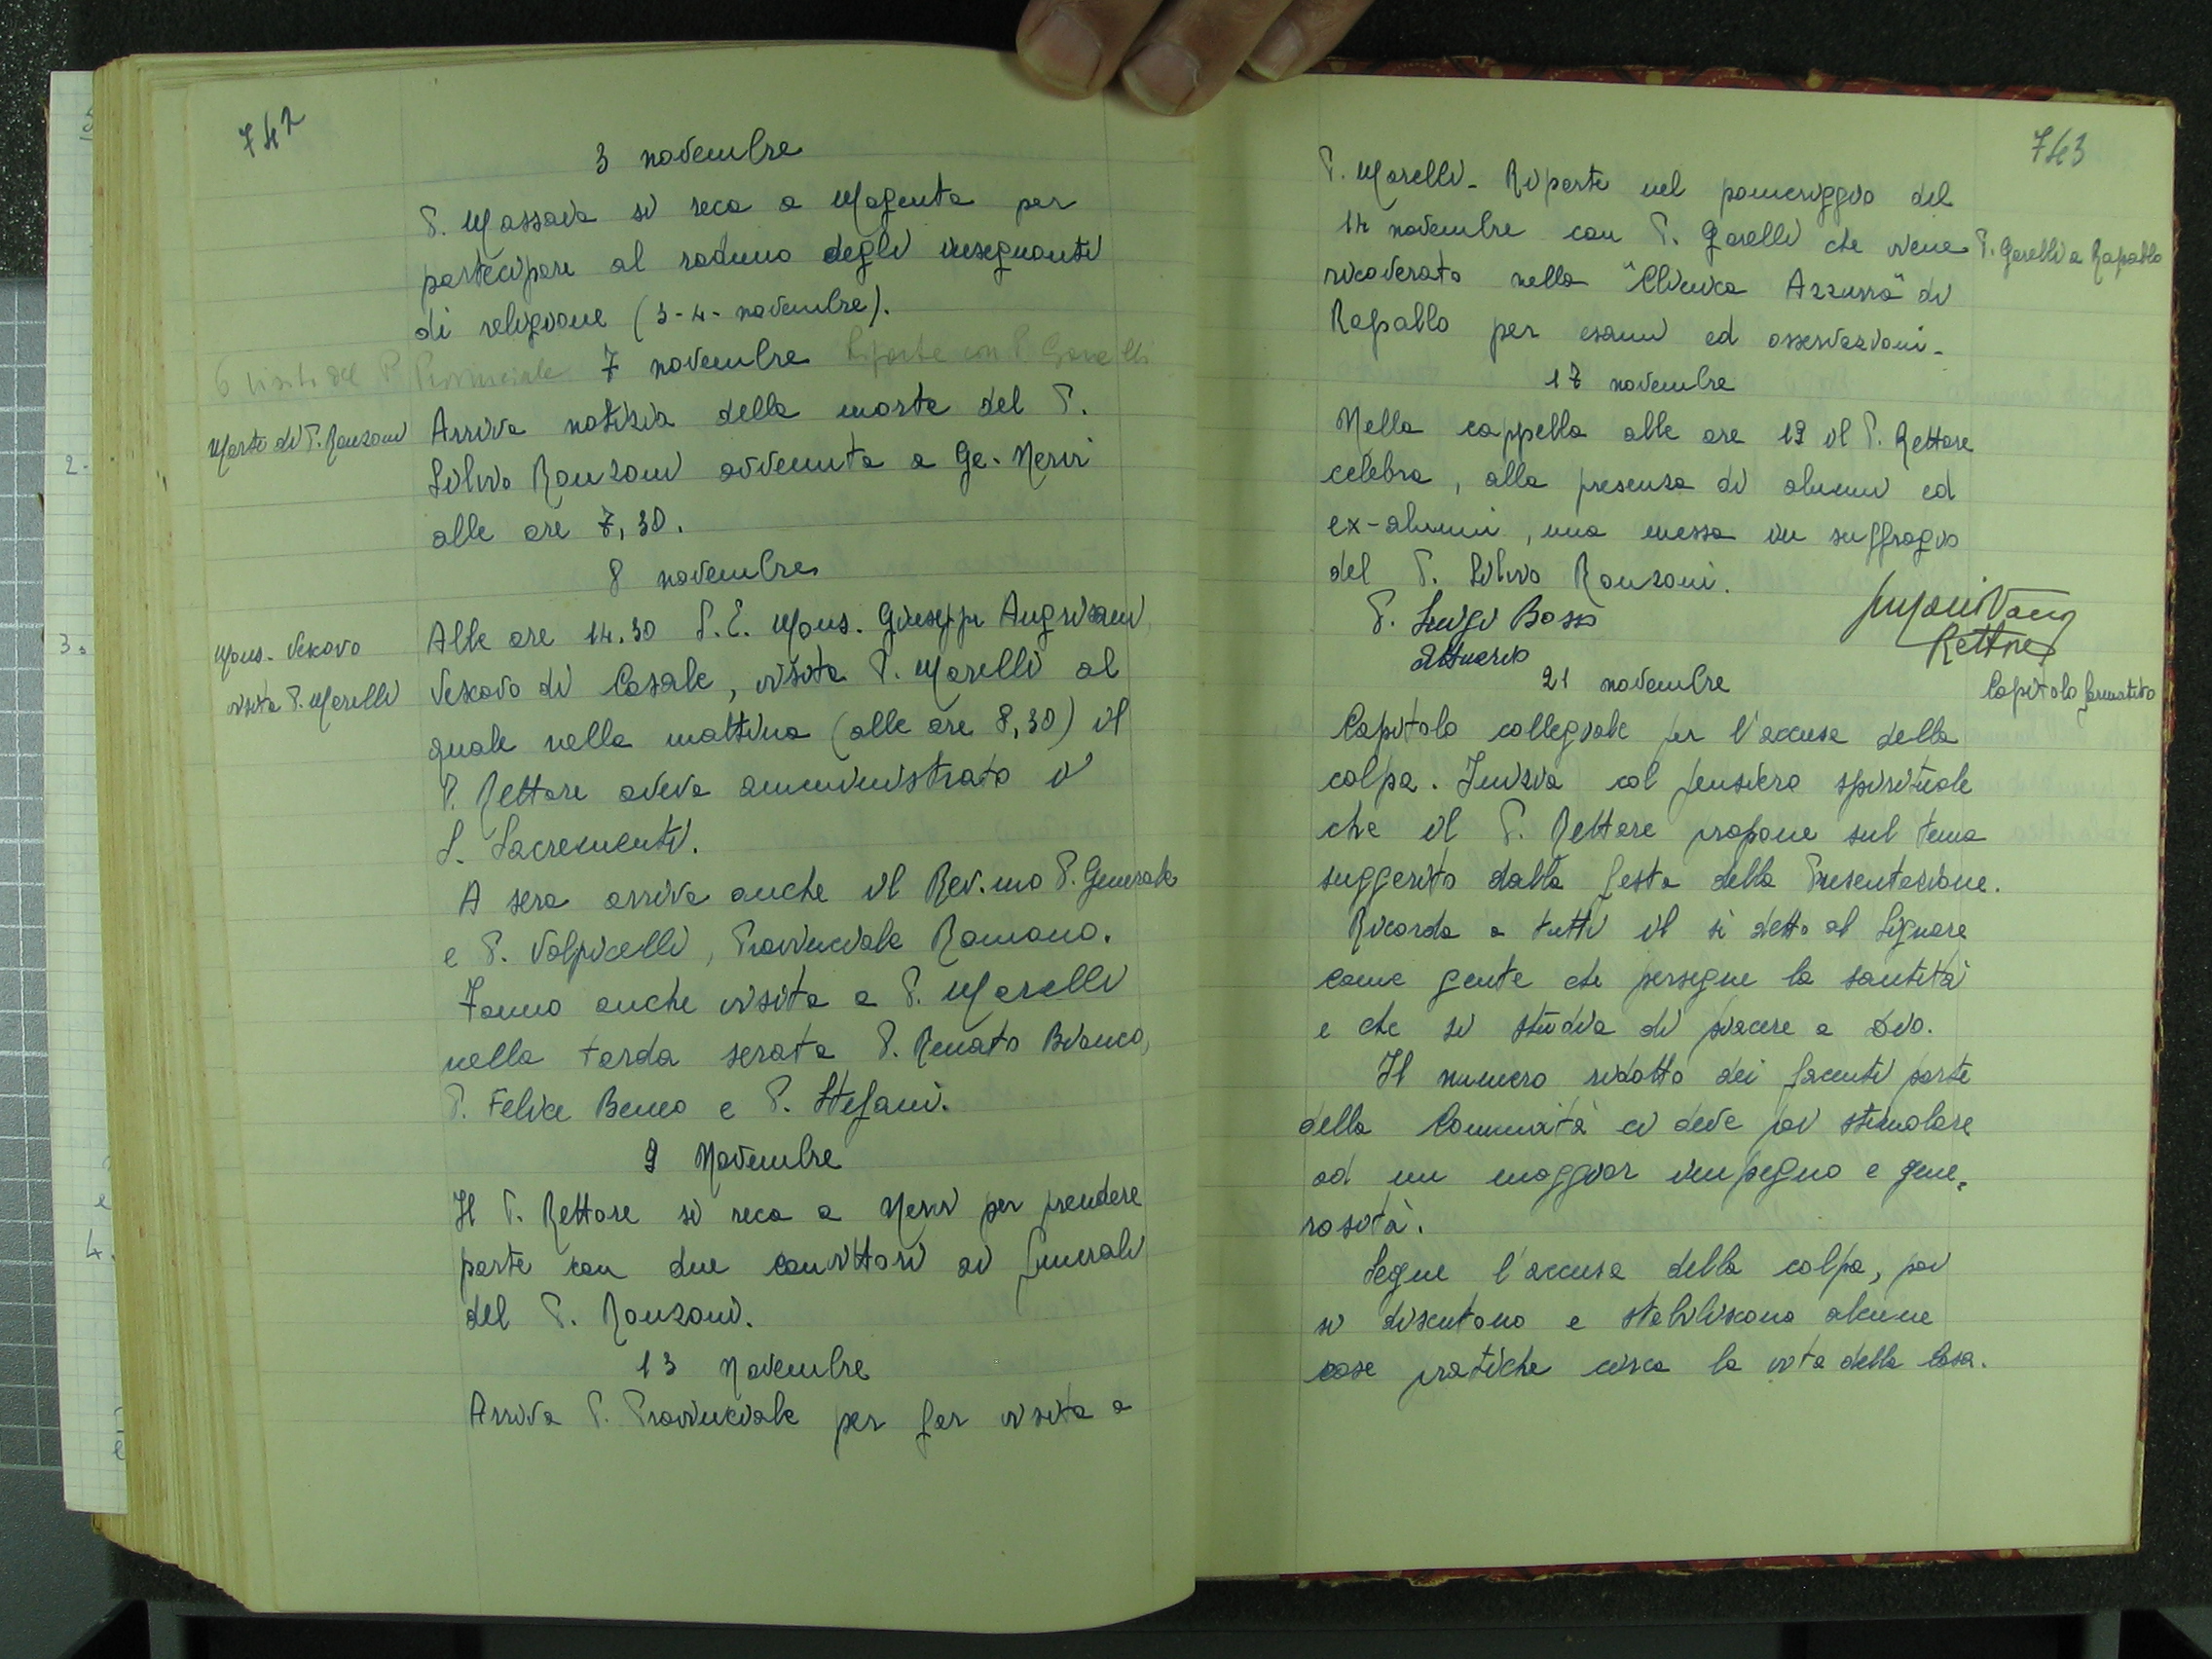 742
3 novembre
P. Massaia si reca a Magenta per
partecipare al raduno degli insegnanti
di religione (3-4- novembre).
6 visita del P. Provinciale
7 novembre
Riparte con P. Gorelli
Morte di P. Ronzoni
Arriva notizia della morte del P.
Silvio Ronzoni avvenuta a Ge-Nervi
alle ore 7,30.
8 novembre
Mons. Vescovo
visita P. Morelli
Alle ore 14.30 S.E. Mons. Giuseppe Angrisani
Vescovo di Casale, visita P. Morelli al
quale nella mattina (alle ore 8,30) il
P. Rettore aveva amministrato i
S. Sacramenti.
A sera arriva anche il Rev.mo P. Generale
e P. Volpicelli, Provinciale Romano.
Fanno anche visita a P. Morelli
nella tarda serata P. Renato Bianco,
P. Felice Beneo e P. Stefani.
9 Novembre
Il P. Rettore si reca a Nervi per prendere
parte con due convittori ai funerali
del P. Ronzoni.
13 Novembre
Arriva P. Provinciale per far visita a
743
P. Morelli- Riparte nel pomeriggio del
14 novembre con P. Gorelli che viene
P. Gorelli a Rapallo
ricoverato nella "Clinica Azzurra" di
Rapallo per esami ed osservazioni-
17 novembre
Nella cappella alle ore 12 il P. Rettore
celebra, alla presenza di alunni ed
ex-alunni, una messa in suffragio
del P. Silvio Ronzoni.
P. Luigi Bosso
Attuario
Rettore
21 novembre
Capitolo formativo
Capitolo collegiale per l'accusa della
colpa. Inizia col pensiero spirituale
che il P. Rettore propone sul tema
suggerito dalla festa della Presentazione.
Ricorda a tutti il sì detto al Signore
come gente che persegue la santità
e che si studia di piacere a Dio.
Il numero ridotto dei facenti parte
della Comunità ci deve poi stimolare
ad un maggior impegno e gene-
rosità.
Segue l'accusa della colpa, poi
si discutono e stabiliscono alcune
cose pratiche circa la vita della Casa.
2.
3.
4.